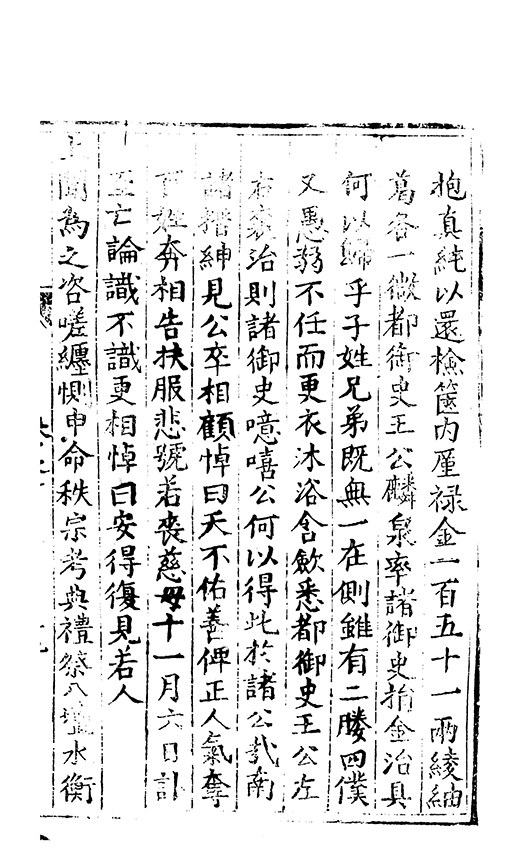 抱真純以還檢篋內廩祿金一百五十一兩綾紬
葛各一微都御史王公麟泉率諸御史捐金治具
何以歸乎子姓兄弟既無一在側雖有二媵四僕
又愚弱不任而更衣沐浴含歛悉都御史王公左
右襄治則諸御史噫嘻公何以得此於諸公哉南
諸搢紳見公卒相顧悼曰天不佑善俾正人氣奪
百姓奔相告扶服悲號若喪慈母十一月六日訃
至亡論識不識更相悼曰安得復見若人
上聞為之咨嗟纏惻申命秩宗考典禮祭八壇水衡